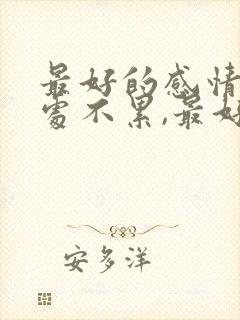 最好的感情
处不累,最好
安多洋